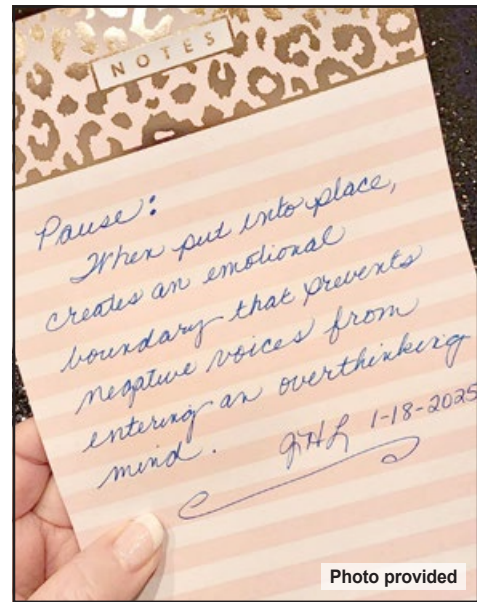 NOTES
Pause:
When put into place,
creates an emotional
boundary that prevents
negative voices from
entering an overthinking
mind.
JHL 1-18-2025
Photo provided